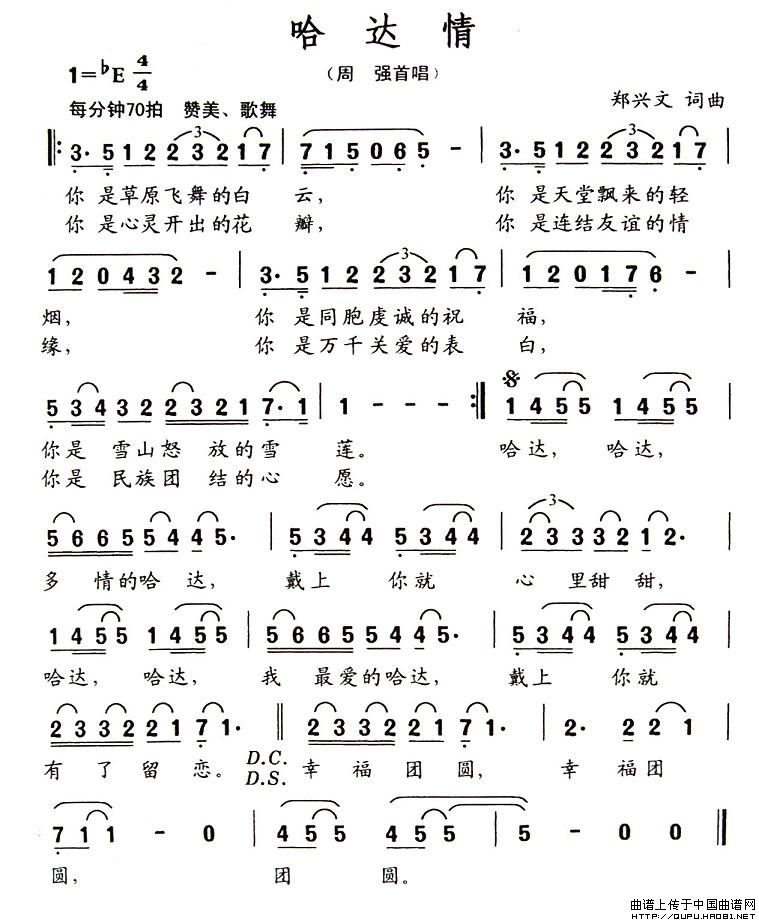 哈达情
1=♭E 4/4
(周 强首唱)
每分钟70拍 赞美、歌舞
郑兴文 词曲
3·5 1 2 2 3 2 1 7 | 7 1 5 0 6 5 - | 3·5 1 2 2 3 2 1 7 |
你 是草原飞舞的白 云, 你 是天堂飘来的轻
你 是心灵开出的花 瓣, 你 是连结友谊的情
1 2 0 4 3 2 - | 3·5 1 2 2 3 2 1 7 | 1 2 0 1 7 6 - |
烟, 你 是同胞虔诚的祝 福,
缘, 你 是万千关爱的表 白,
5 3 4 3 2 2 3 2 1 7·1 | 1 - - - :‖ 1 4 5 5 1 4 5 5 |
你是 雪山怒 放的雪 莲。 哈达, 哈达,
你是 民族团 结的心 愿。
5 6 6 5 5 4 4 5· | 5 3 4 4 5 3 4 4 | 2 3 3 3 2 1 2· |
多 情的哈 达, 戴上 你就 心 里甜 甜,
1 4 5 5 1 4 5 5 | 5 6 6 5 5 4 4 5· | 5 3 4 4 5 3 4 4 |
哈达, 哈达, 我 最爱的哈达, 戴上 你就
2 3 3 2 2 1 7 1· ‖ 2 3 3 2 2 1 7 1· | 2· 2 2 1 |
有 了 留 恋。 D.C. 幸 福 团 圆, 幸 福 团
D.S.
7 1 1 - 0 | 4 5 5 4 5 5 | 5 - 0 0 ‖
圆, 团 圆。
曲谱上传于中国曲谱网
HTTP://QUPU.HAO81.NET